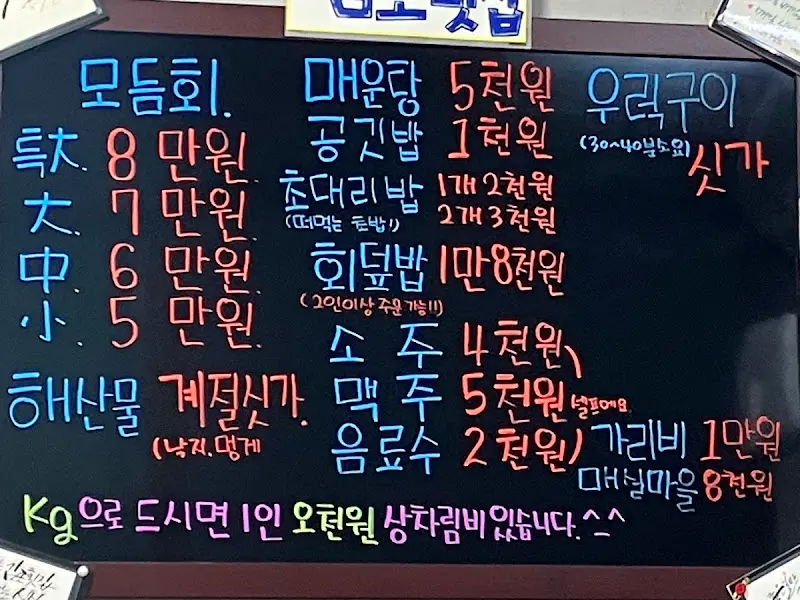 모듬회.
특大. 8 만원.
大. 7 만원.
中. 6 만원.
小. 5 만원.
해산물 계절싯가.
(낙지.멍게
매운탕 5천원
공깃밥 1천원
초대리밥 1개 2천원
(떠먹는 초밥!) 2개 3천원
회덮밥 1만8천원
(2인이상 주문가능!!)
소 주 4천원
맥 주 5천원 셀프에요
음료수 2천원
우럭구이
(30~40분소요) 싯가
가리비 1만원
매실마을 8천원
Kg으로 드시면 1인 오천원 상차림비 있습니다.^_^